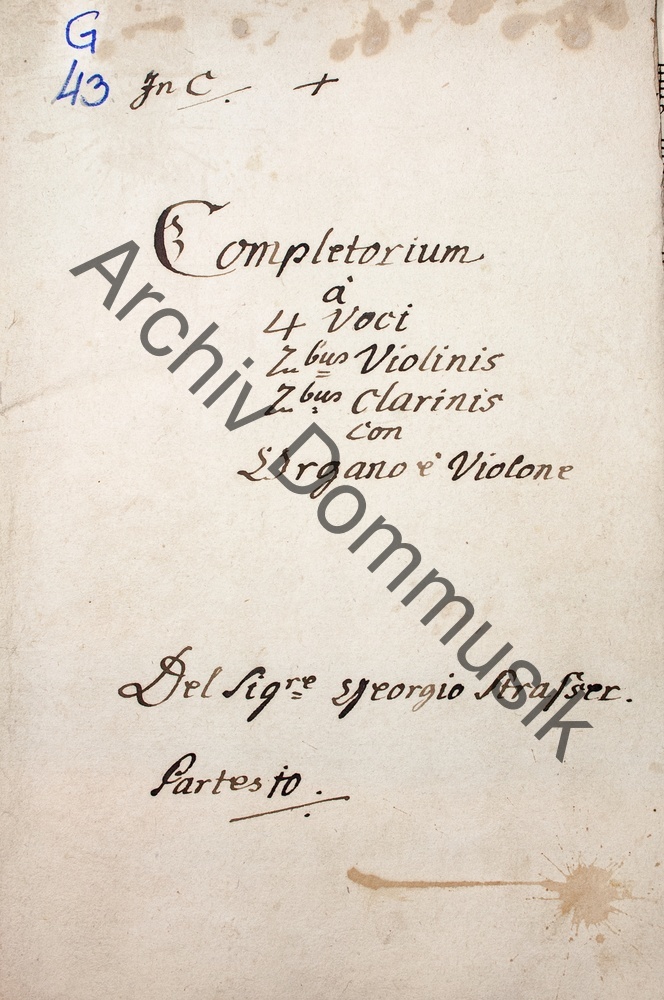 G
43 In C. +
Completorium
à
4 Voci
2bus Violinis
2bus Clarinis
con
Organo è Violone
Del Sigre Georgio Straſser.
Partes 10.
Archiv Dommusik